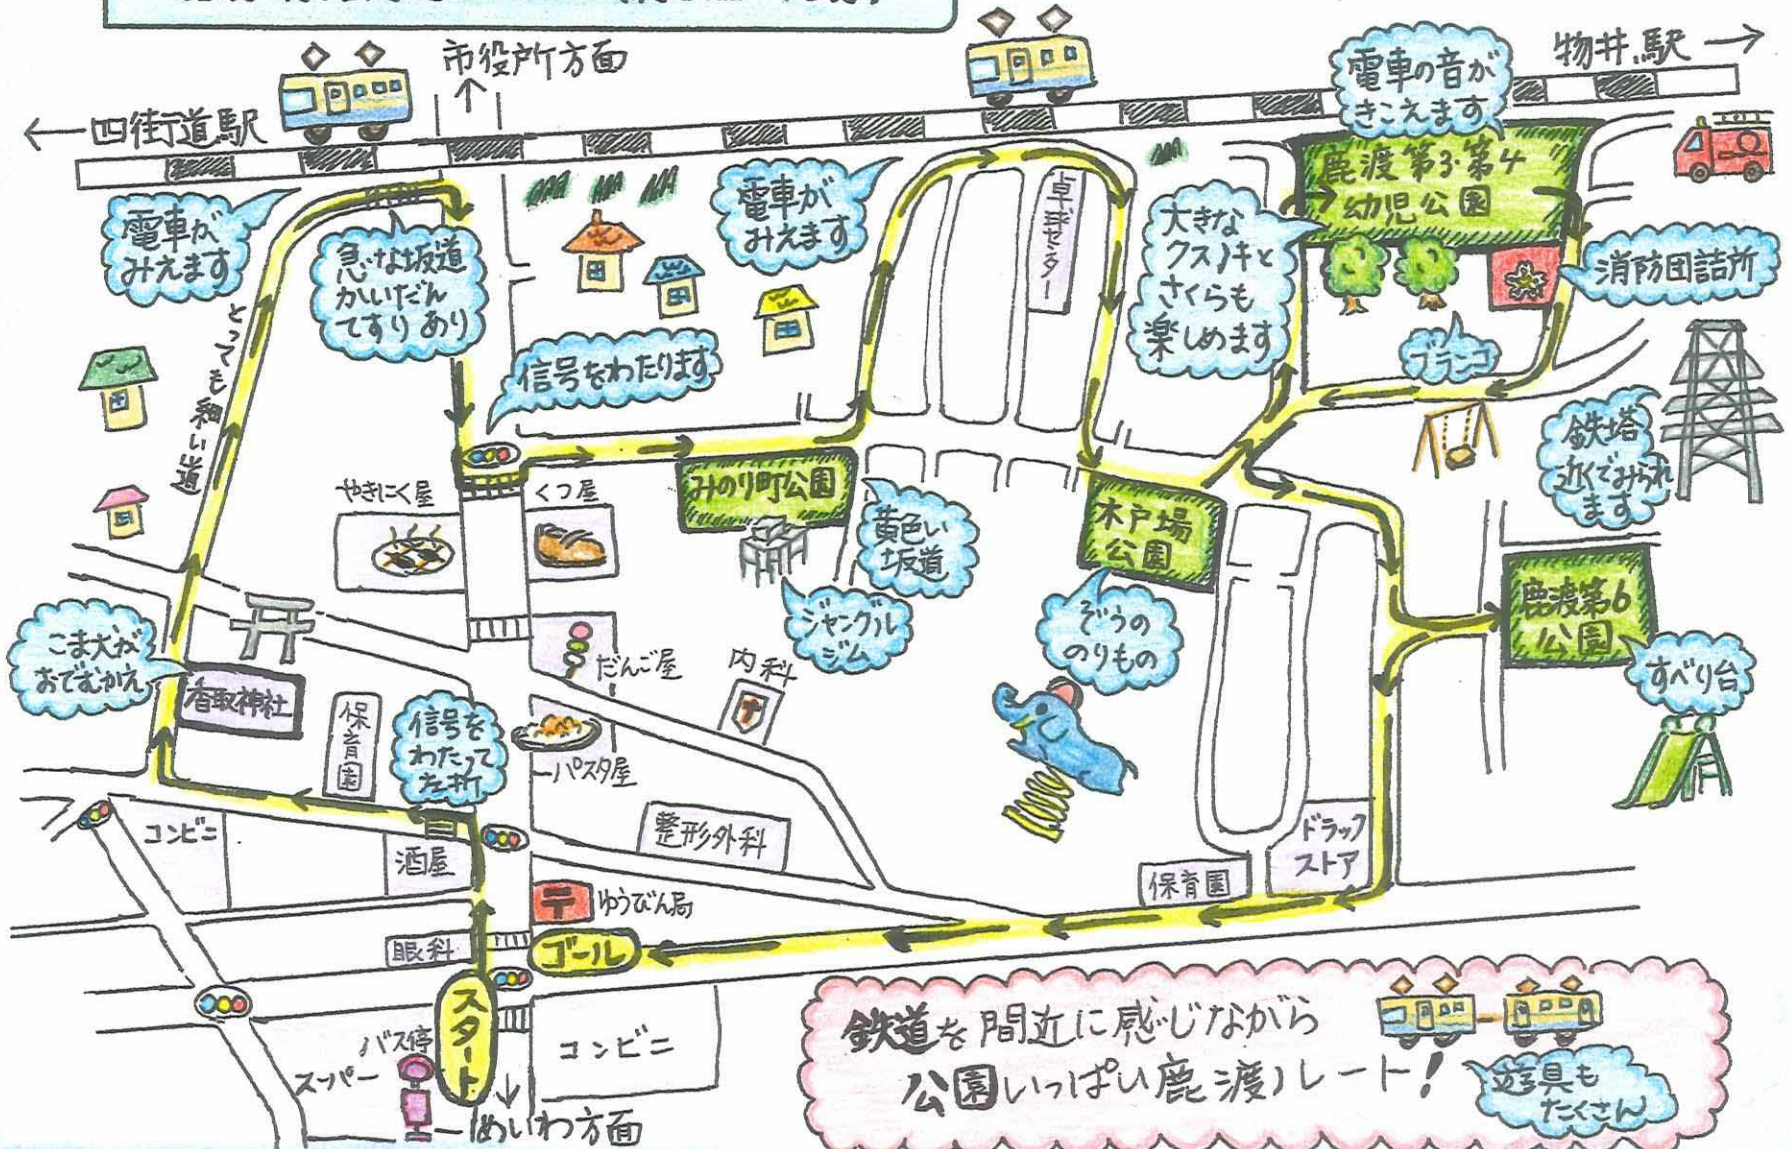 市役所方面
物井駅
四街道駅
電車の音が
きこえます
鹿渡第3・第4
幼児公園
電車が
みえます
急な坂道
かいだん
てすりあり
電車が
みえます
卓球センター
大きな
クスノキと
さくらも
楽しめます
消防団詰所
ブランコ
とっても細い道
信号をわたります
鉄塔
近くでみられ
ます
やきにく屋
くつ屋
みのり町公園
黄色い
坂道
木戸場
公園
鹿渡第6
公園
ジャングル
ジム
ぞうの
のりもの
すべり台
こま犬が
おでむかえ
香取神社
保育園
信号を
わたって
左折
だんご屋
内科
パスタ屋
コンビニ
酒屋
整形外科
ドラッグ
ストア
保育園
ゆうびん局
眼科
ゴール
スタート
バス停
スーパー
コンビニ
めいわ方面
鉄道を間近に感じながら
公園いっぱい鹿渡ルート!
遊具も
たくさん